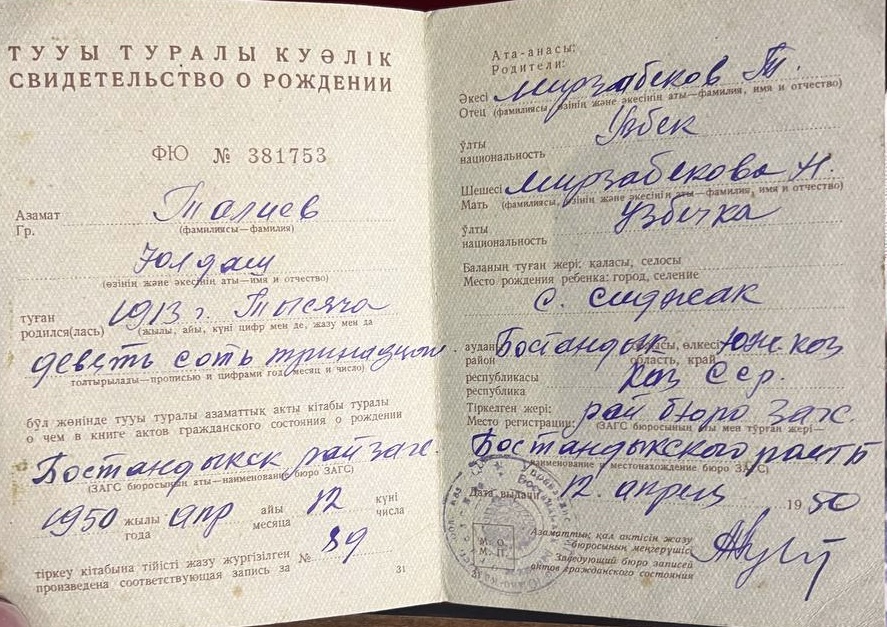 ТУУЫ ТУРАЛЫ КУӘЛІК
СВИДЕТЕЛЬСТВО О РОЖДЕНИИ
ФЮ № 381753
Азамат
Гр. Талиев
(фамилиясы—фамилия)
Юлдаш
(өзінің және әкесінің аты—имя и отчество)
туған
родился(лась) 1913 г. Тысяча
(жылы, айы, күні цифр мен де, жазу мен да
девять соть тринадцат.
толтырылады—прописью и цифрами год, месяц и число)
бұл жөнінде тууы туралы азаматтық акты кітабы туралы
о чем в книге актов гражданского состояния о рождении
Бостандыкск райзагс.
(ЗАГС бюросының аты—наименование бюро ЗАГС)
1950 жылы апр айы 12 күні
года месяца числа
тіркеу кітабына тійісті жазу жүргізілген
произведена соответствующая запись за № 39
31
Ата-анасы:
Родители:
Әкесі Мирзабеков Т.
Отец (фамилиясы, өзінің және әкесінің аты—фамилия, имя и отчество)
ұлты Узбек
национальность
Шешесі Мирзабекова Н.
Мать (фамилиясы, өзінің және әкесінің аты—фамилия, имя и отчество)
ұлты Узбечка
национальность
Баланың туған жері: қаласы, селосы
Место рождения ребенка: город, селение
с. Сиджак
ауданы Бостандык облысы, өлкесі Юж. каз
район область, край
республикасы Каз ССР.
республика
Тіркелген жері: рай бюро Загс.
Место регистрации: (ЗАГС бюросының аты мен тұрған жері—
Бостандыкского
наименование и местонахождение бюро ЗАГС)
Дата выдачи 12. апрель 1950
М. О.
М. П.
Азаматтық қал актісін жазу
бюросының меңгерушісі
Заведующий бюро записей
актов гражданского состояния